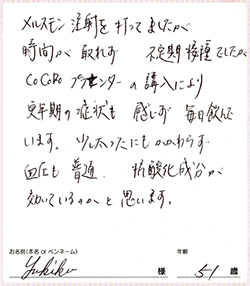 メルスモン注射を打ってましたが
時間が取れず 不定期接種でしたが
CoCoRo プラセンターの購入により
更年期の症状も 感じず 毎日飲んで
います。少し太ったにもかかわらず
血圧も普通 抗酸化成分が
効いているのかと思います。
お名前(本名 or ペンネーム) 年齢
Yukiko 様 51 歳